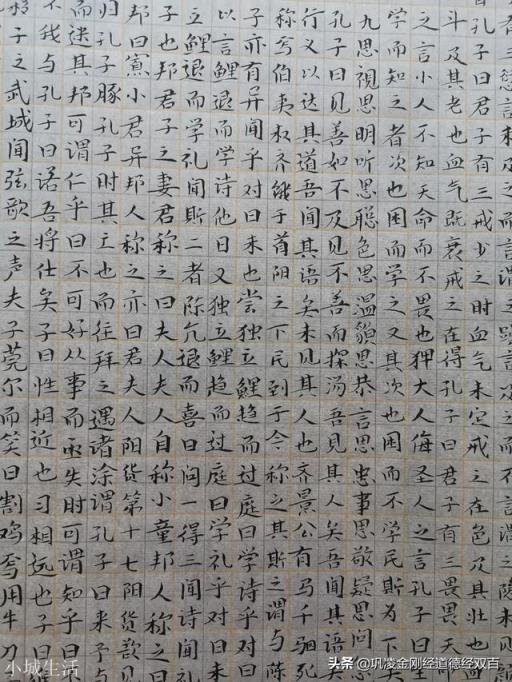 三愆言
孔子曰君子有三戒少之时血气未定戒之在色及其壮也
斗及其老也血气既衰戒之在得孔子曰君子有三畏畏天
之言小人不知天命而不畏也狎大人侮圣人之言孔子曰生
学而知之者次也困而学之又其次也困而不学民斯为下
九思视思明听思聪色思温貌思恭言思忠事思敬疑思问
孔子曰见善如不及见不善而探汤吾见其人矣吾闻其语
行义以达其道吾闻其语矣未见其人也齐景公有马千驷死
称焉伯夷叔齐饿于首阳之下民到于今称之其斯之谓与陈
子亦有异闻乎对曰未也尝独立鲤趋而过庭曰学诗乎对曰
以言鲤退而学诗他日又独立鲤趋而过庭曰学礼乎对曰未
立鲤退而学礼闻斯二者陈亢退而喜曰问一得三闻诗闻
子也邦君子之妻君称之曰夫人夫人自称小童邦人称之曰
邦曰寡小君异邦人称之亦曰君夫人阳货第十七阳货欲见
归孔子豚孔子时其亡也而往拜之遇诸涂谓孔子曰来予与
而迷其邦可谓仁乎曰不可好从事而亟失时可谓知乎曰
不我与孔子曰诺吾将仕矣子曰性相近也习相远也子曰
移子之武城闻弦歌之声夫子莞尔而笑曰割鸡焉用牛刀
小城生活
头条 @巩凌金刚经道德经双百